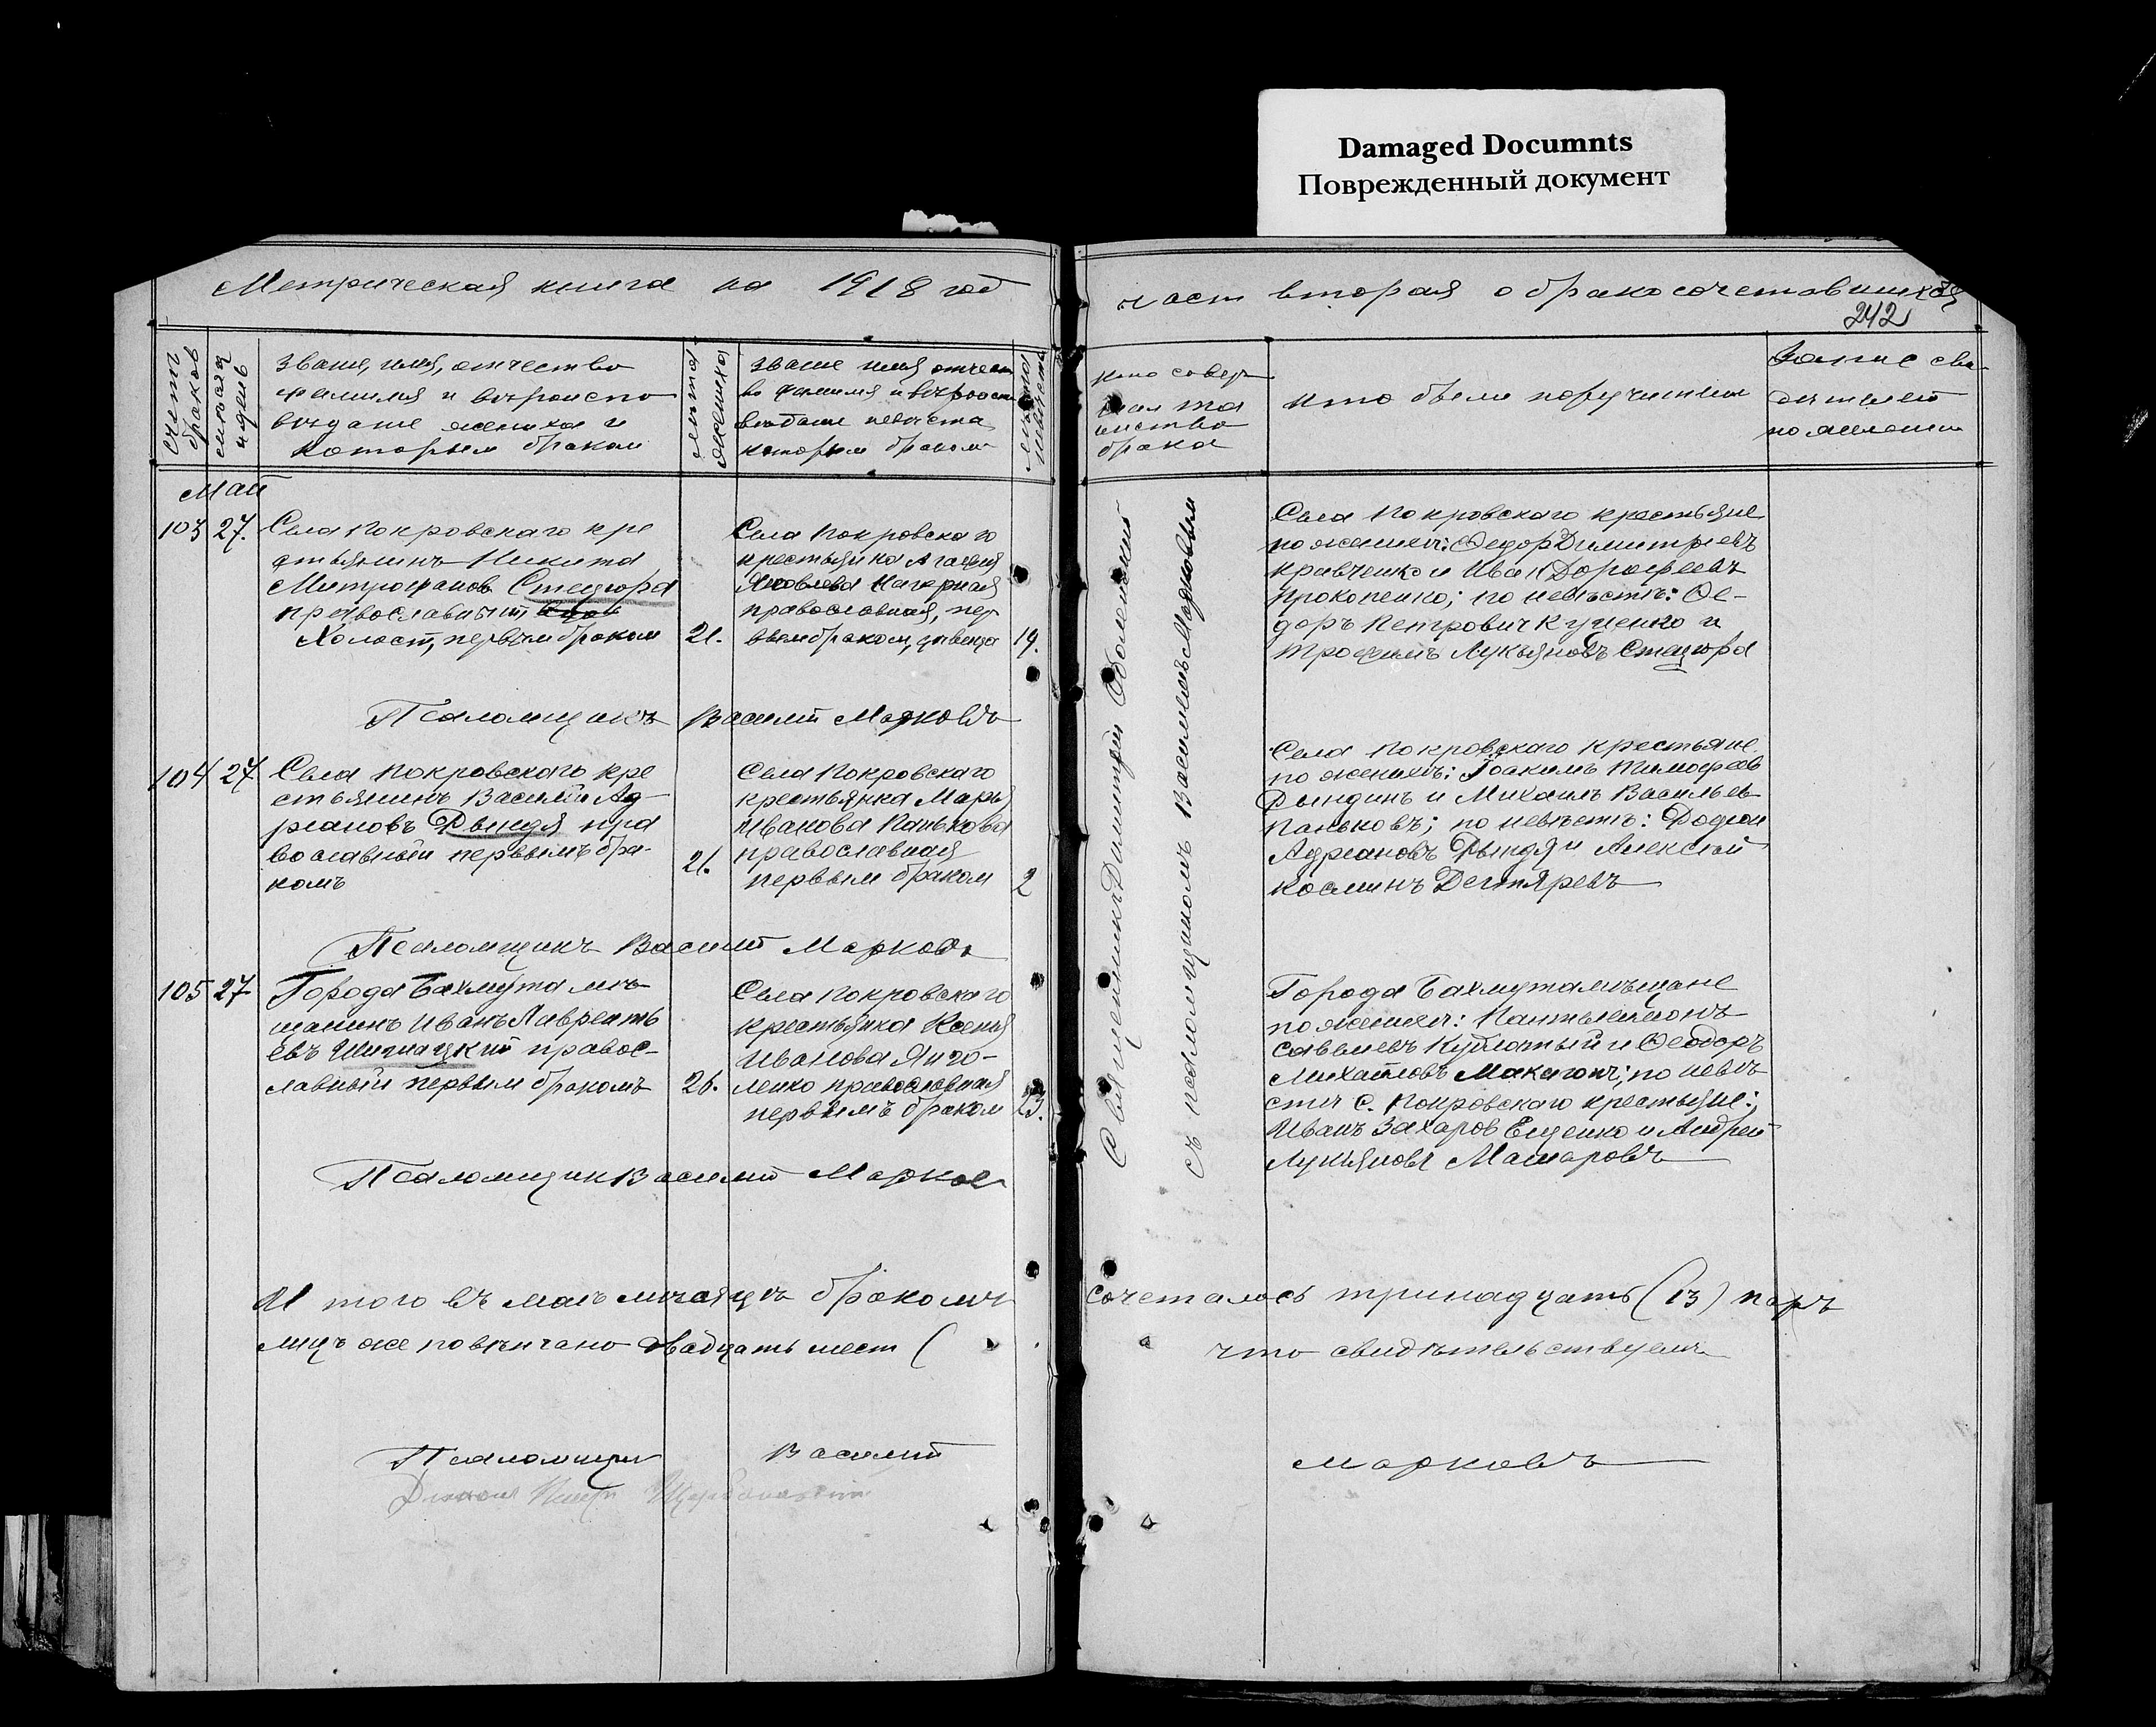 Damaged Documnts
Поврежденный документ
Метрическая книга на 1918 год
част вторая о бракосочетавшихся
242
счетъ браковъ
мѣсяцъ и день
званіе, имя, отчество
фамилія и вѣроиспо
вѣданіе жениха и
которым браком
лѣта жениха
званіе имя отчест
во фамилія и вѣроиспо
вѣдание невѣста
которым браком
лѣта невѣсты
кто совер
шал та
инство
брака
кто были поручители
Запис сви
дѣтелей
по желанию
Май
103 27.
Села Покровскаго кре
стьянинъ Никита
Митрофанов Стецюра
православный
Холост, первым браком
21.
Села Покровского
крестьянка Агафия
Яковлева Нагорная
православная, пер
вым браком, девица
19.
Села Покровскаго крестьяне
по женихѣ: Федор Димитріевъ
Кравченко и Иван Дорофеевъ
Прокопенко; по невѣстѣ: Фе-
доръ Петрович Куценко и
Трофимъ Лукьяновъ Стецюра
Псаломщикъ Василий Марковъ
104 27.
Села Покровского кре
стьянинъ Василій Ад-
риановъ Рындя пра
вославный первымъ бра-
комъ
21.
Села Покровскаго
крестьянка Марья
Иванова Панькова
православная
первым браком
2
Села Покровскаго крестьяне
по женихѣ: Іоакимъ Тимофеев
Рындинъ и Михаилъ Васильев
Паньковъ; по невѣстѣ: Родион
Адриановъ Рындя и Алексѣй
Косминъ Дегтяревъ
Псаломщикъ Василий Марковъ
105 27
Города Бахмута мѣ-
щанинъ Иванъ Лавренть
евъ Шишацкий правос-
лавный первым бракомъ
26.
Села Покровскаго
крестьянка Ксения
Иванова Яиго-
ленко православная
первымъ браком
23.
Города Бахмута мѣщане
по женихѣ: Пантелеймонъ
Савельевъ и Феодоръ
Михайловъ Макагонъ; по невѣ
стѣ с. Покровскаго крестьяне:
Иванъ Захаров Ещенко и Андрей
Лукьяновъ Машаровъ
Псаломщик Василий Марков
Священникъ Димитрій Оболенский
съ псаломщикомъ Васильемъ Марковым
И того въ маѣ мѣсяцѣ бракомъ сочеталось тринадцать (13) паръ
лицъ же повѣнчано двадцать шест (
что свидѣтельствуемъ
Псаломщик Василий Марковъ